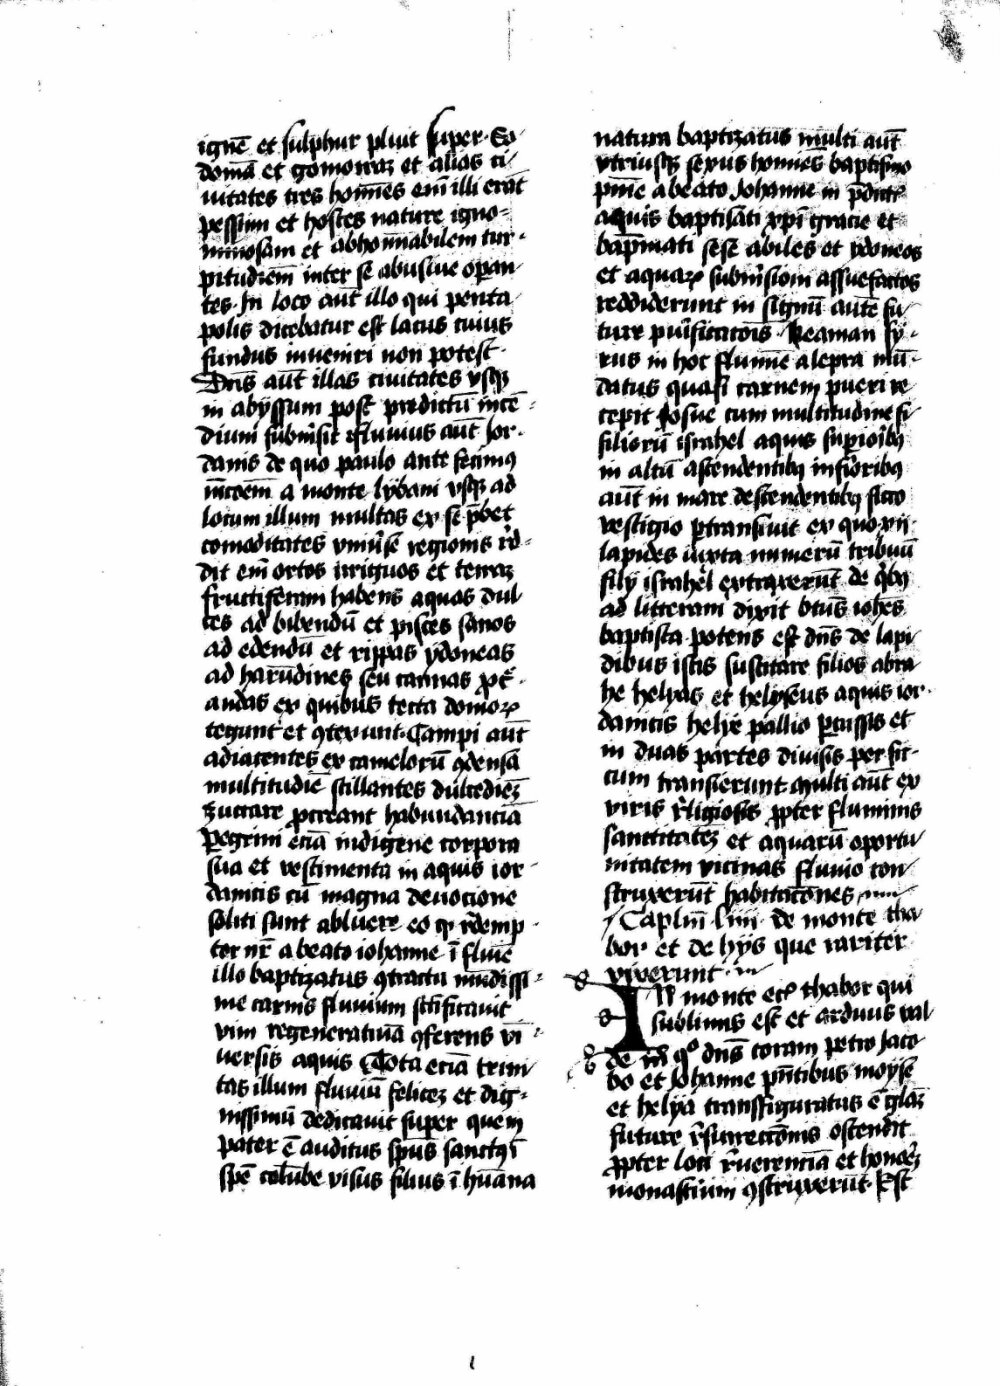 ignē et sulphur pluit super So
domā et gomoraʒ et alias ci
uitates tres hoīnes em̄ illi erāt
pessimi et hostes nature igno-
miniosam et abhoīnabilem tur-
pitudinem inter se abusiue opan
tes. In loco aut̄ illo qui penta
polis dicebatur est lacus cuius
fundus inueniri non potest.
Dn̄s aut̄ illas ciuitates vsqʒ
in abyssum post predictū incē-
dium submisit fluuius aut Jor-
danis de quo paulo ante fecimꝰ
a monte lybani vsqʒ ad
locum illum multas ex se p̄bet
comoditates vniūse regionis
dit em̄ ortos irriguos et terraʒ
fructiferam habens aquas dul
ces ad bibendū et pisces sanos
ad edendū et rippas ydoneas
ad harūdines seu cannas
andas ex quibus tecta domoꝝ
tegunt et ꝯtexunt. Campi aut̄
adiacentes ex camelorū ꝯdensā
multitudīe stillantes dulcedīeʒ
zuccare ꝓcreant habundanciā
ꝑegrini eciā indigene corpora
sua et vestimenta in aquis ior-
danicis cū magna deuocione
soliti sunt abluere eo ꝙ rēdemp-
tor nr̄ a beato iohanne ī flūīe
illo baptizatus ꝯtractu mūdissi-
me carnis fluuium sct̄ificauit
vim regeneratiuā ꝯferens vī-
uersis aquis Tota eciā trini
tas illum fluuiū feliceʒ et dig-
nissimū dedicauit super quem
pater ē auditus spūs sanctꝰ ī
spē colūbe visus filius ī hūana
natura baptizatus multi aut̄
vtriusqʒ sexus hoīnes baptismo
pnīe a beato Johanne in
aquis baptisāti xp̄i gracie et
sese abiles et ydoneos
et aquaꝝ submīsioni assuefactos
reddiderunt in signū autē fu-
ture purificatōis Neaman sy-
rus in hoc flumīe a lepra mū-
datus quasi carnem pueri re
cepit Josue cum multitudine fi
filiorū israhel aquis suꝑioribꝫ
in altū ascendentibꝫ inferioribꝫ
aut̄ in mare descendentibꝫ sicco
vestigio ꝑtransiuit ex quo xij
lapides iuxta numerū tribuū
filij israhel extraxerūt de qͥbꝫ
ad litteram dixit btūs iohēs
baptista potens est dn̄s de lapi
dibus istis suscitare filios abra
he helyas et helyseus aquis ior-
danicis helye pallio ꝑcussis et
in duas partes diuisis per sic-
cum transierunt multi aut̄ ex
viris rēligiosis ꝓpter fluminis
sanctitateʒ et aquarū oportu-
nitatem vicinas fluuio con-
struxerūt habitacōnes
Caplm̄ liiij de monte tha
bor et de hijs que rariter
viuerunt
IN monte etꝰ thabor qui
sublimis est et arduus val-
de in qͦ dn̄s coram petro Jaco-
bo et Johanne pn̄tibus moyse
et helya transfiguratus ē gl̄aʒ
future rēsurrectionis ostendit
ꝓpter loci rēuerentiā et honorēʒ
monastīum ꝯstruxerūt. Est